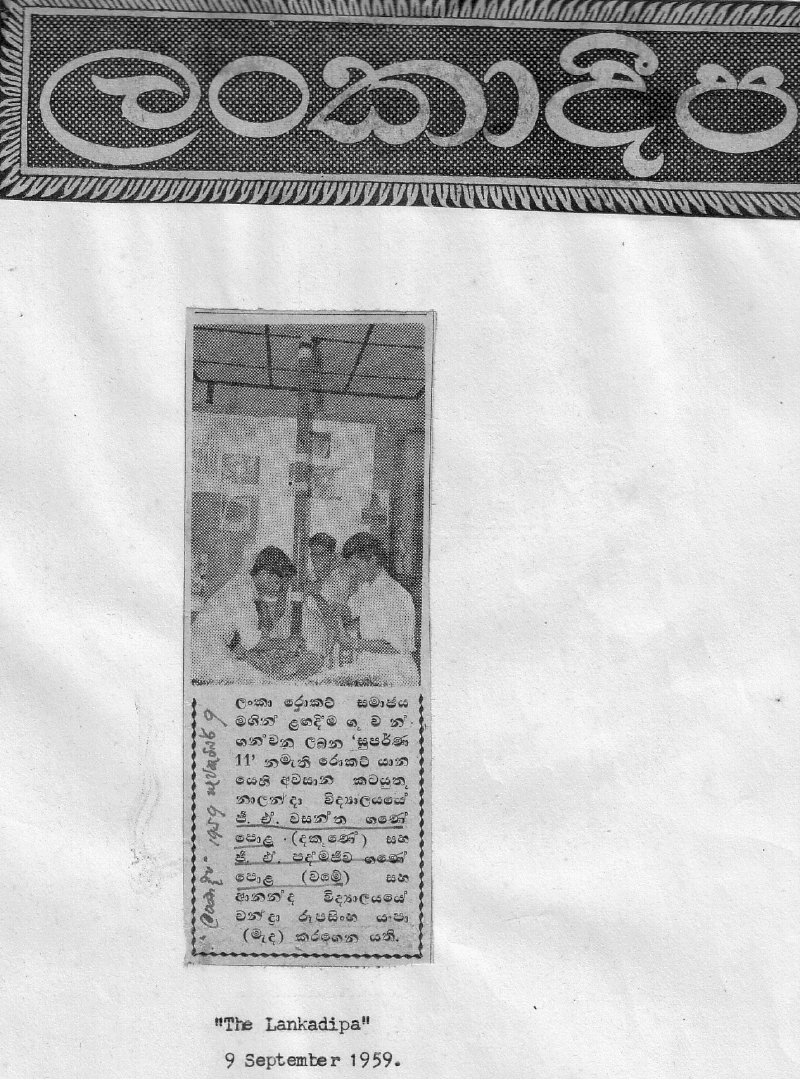 ලංකාදීප
ලංකා රොකට් සමාජය
මගින් ළඟදීම ගුවන්
ගන්වනු ලබන ‘සුපර්ණ
11’ නමැති රොකට් යාන
යෙහි අවසාන කටයුතු
නාලන්දා විද්‍යාලයයේ
ජී. ඒ. වසන්ත ගණේ
පොළ (දකුණේ) සහ
ජී. ඒ. පද්මජීව ගණේ
පොළ (වමේ) සහ
ආනන්ද විද්‍යාලයයේ
චන්ද්‍රා රූපසිංහ යංපා
(මැද) කරගෙන යති.
ලංකාදීප 1959 සැප්තැම්බර් 9
"The Lankadipa"
9 September 1959.